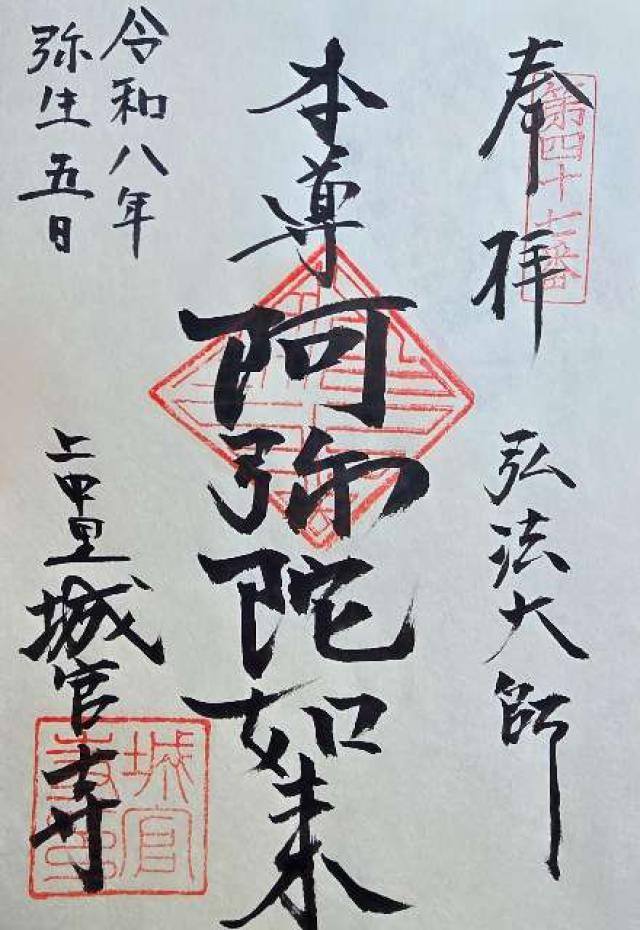 奉拝
第四十七番
弘法大師
本尊
阿弥陀如来
令和八年
弥生五日
上中里
城官寺
城官
寺印